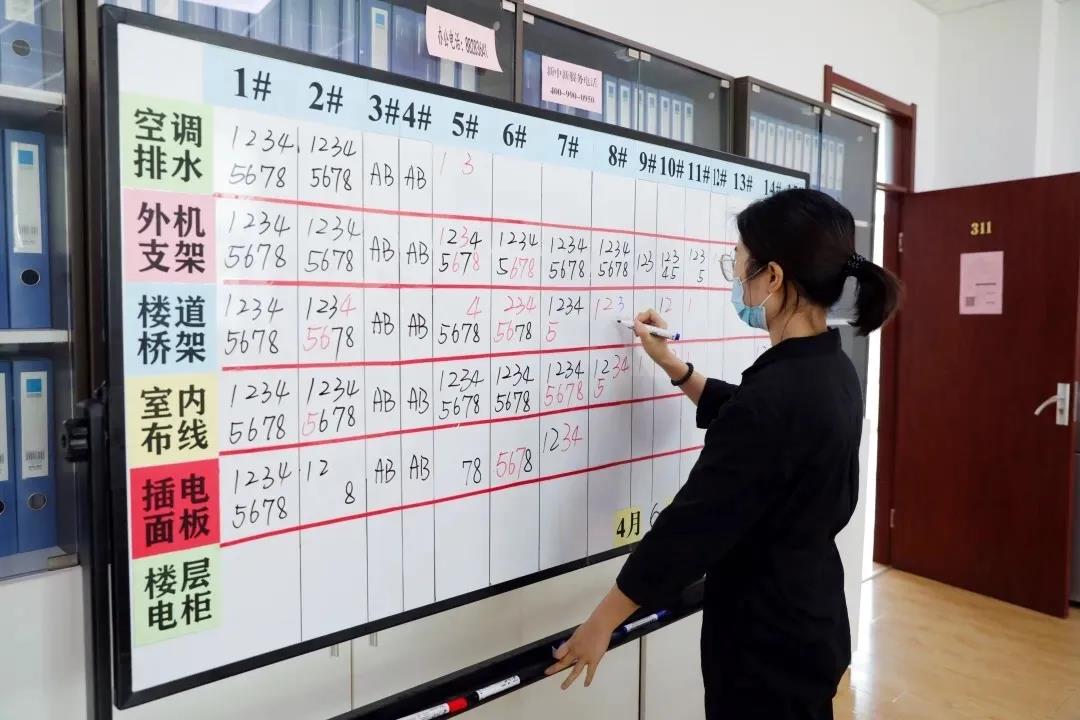 办公电话：88283641
新中新服务电话
400-990-0950
1# 2# 3# 4# 5# 6# 7# 8# 9# 10# 11# 12# 13# 14#
空调
排水
1234 1234 AB AB 1 3
5678 5678
外机
支架
1234 1234 AB AB 1234 1234 1234 1234 123 123 123
5678 5678 5678 5678 5678 5678 45 5
楼道
桥架
1234 1234 AB AB 4 234 1234 123 12 1
5678 5678 5678 5678 5
室内
布线
1234 1234 AB AB 1234 1234 1234 1234
5678 5678 5678 5678 5678 5
插电
面板
1234 12 AB AB 78 5678 1234
5678 8
楼层
电柜
4月 6
311